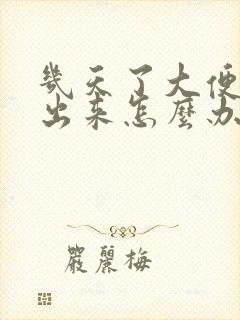 幾天了大便
出來怎麼办
嚴麗梅